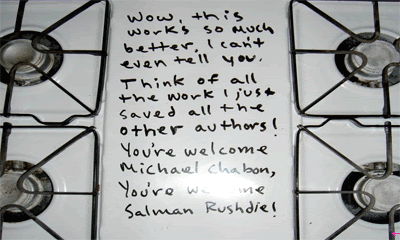 Wow, this
works so much
better, I can't
even tell you.
Think of all
the work I just
saved all the
other authors!
You're welcome
Michael Chabon,
You're welcome
Salman Rushdie!